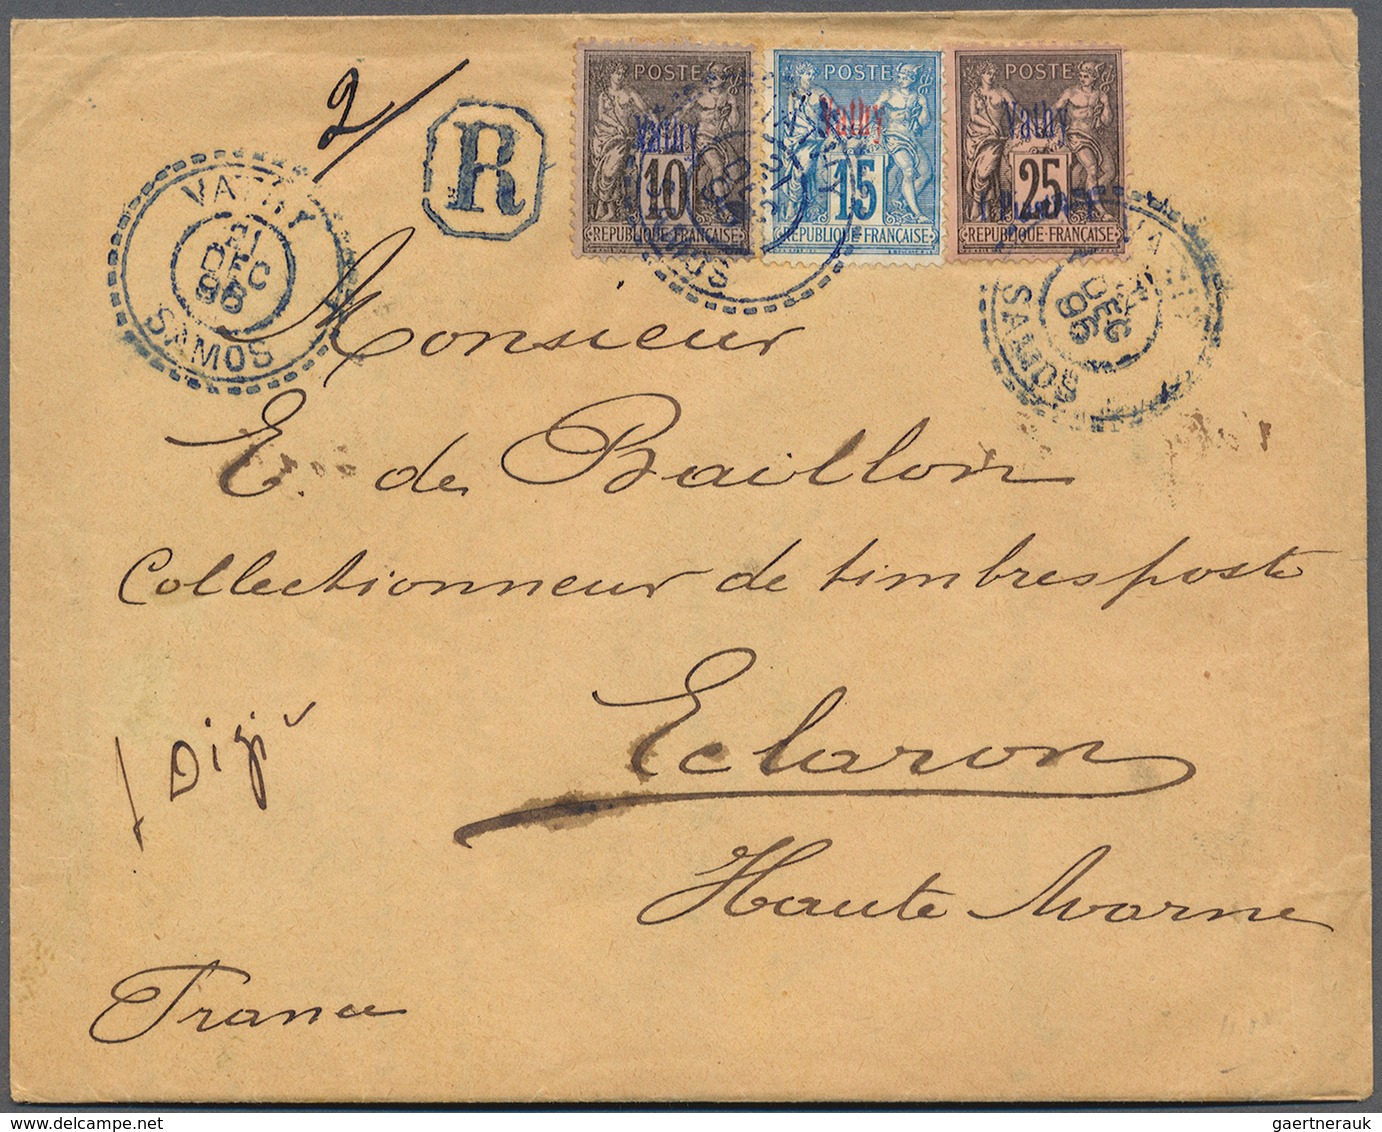 2/
R
POSTE
Vathy
10
REPUBLIQUE FRANÇAISE
POSTE
Vathy
15
REPUBLIQUE FRANÇAISE
POSTE
Vathy
25
REPUBLIQUE FRANÇAISE
VATHY
21
DEC
96
SAMOS
SAMOS
VATHY
21
DEC
96
SAMOS
Monsieur
E. de Baillon
Collectionneur de timbresposte
Eclaron
Haute Marne
France
gaertnerauk@delcampe.net